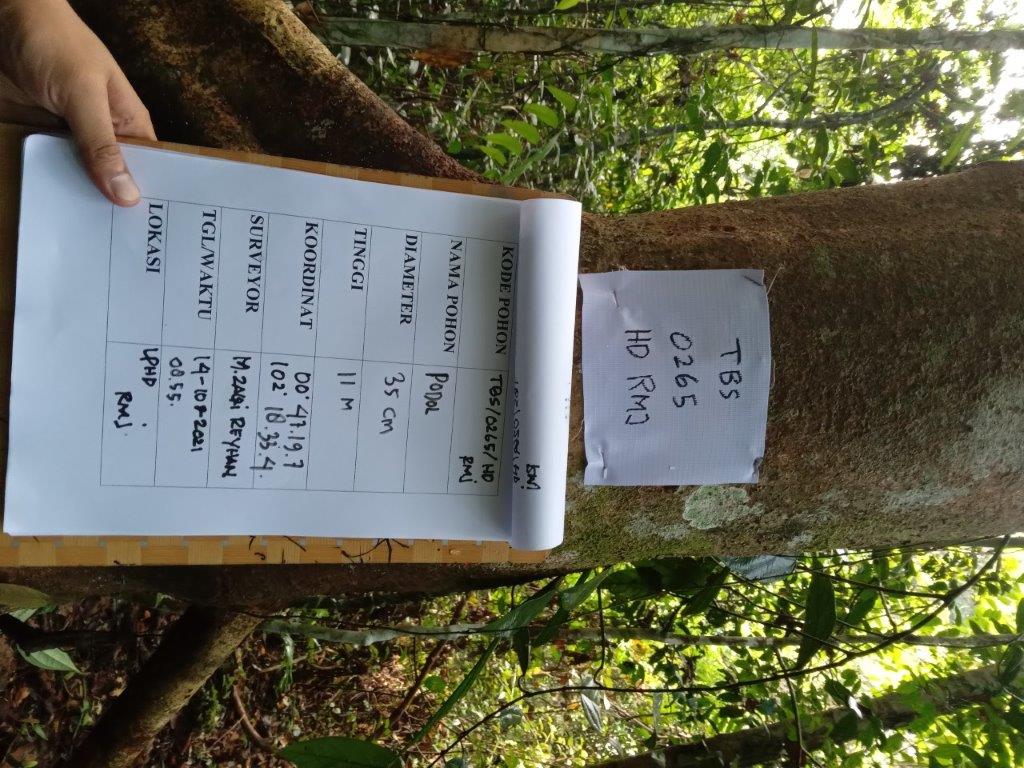 TBS
0265
HD RMJ
KODE POHON TBS/0265/HD
RMJ
NAMA POHON PODOL
DIAMETER 35 cm
TINGGI 11 M
KOORDINAT 00° 47.19.7
102° 18.33.4.
SURVEYOR M. ZAQI REYHAN
TGL/WAKTU 14-10-2021
08.55.
LOKASI LPHD
RMJ.